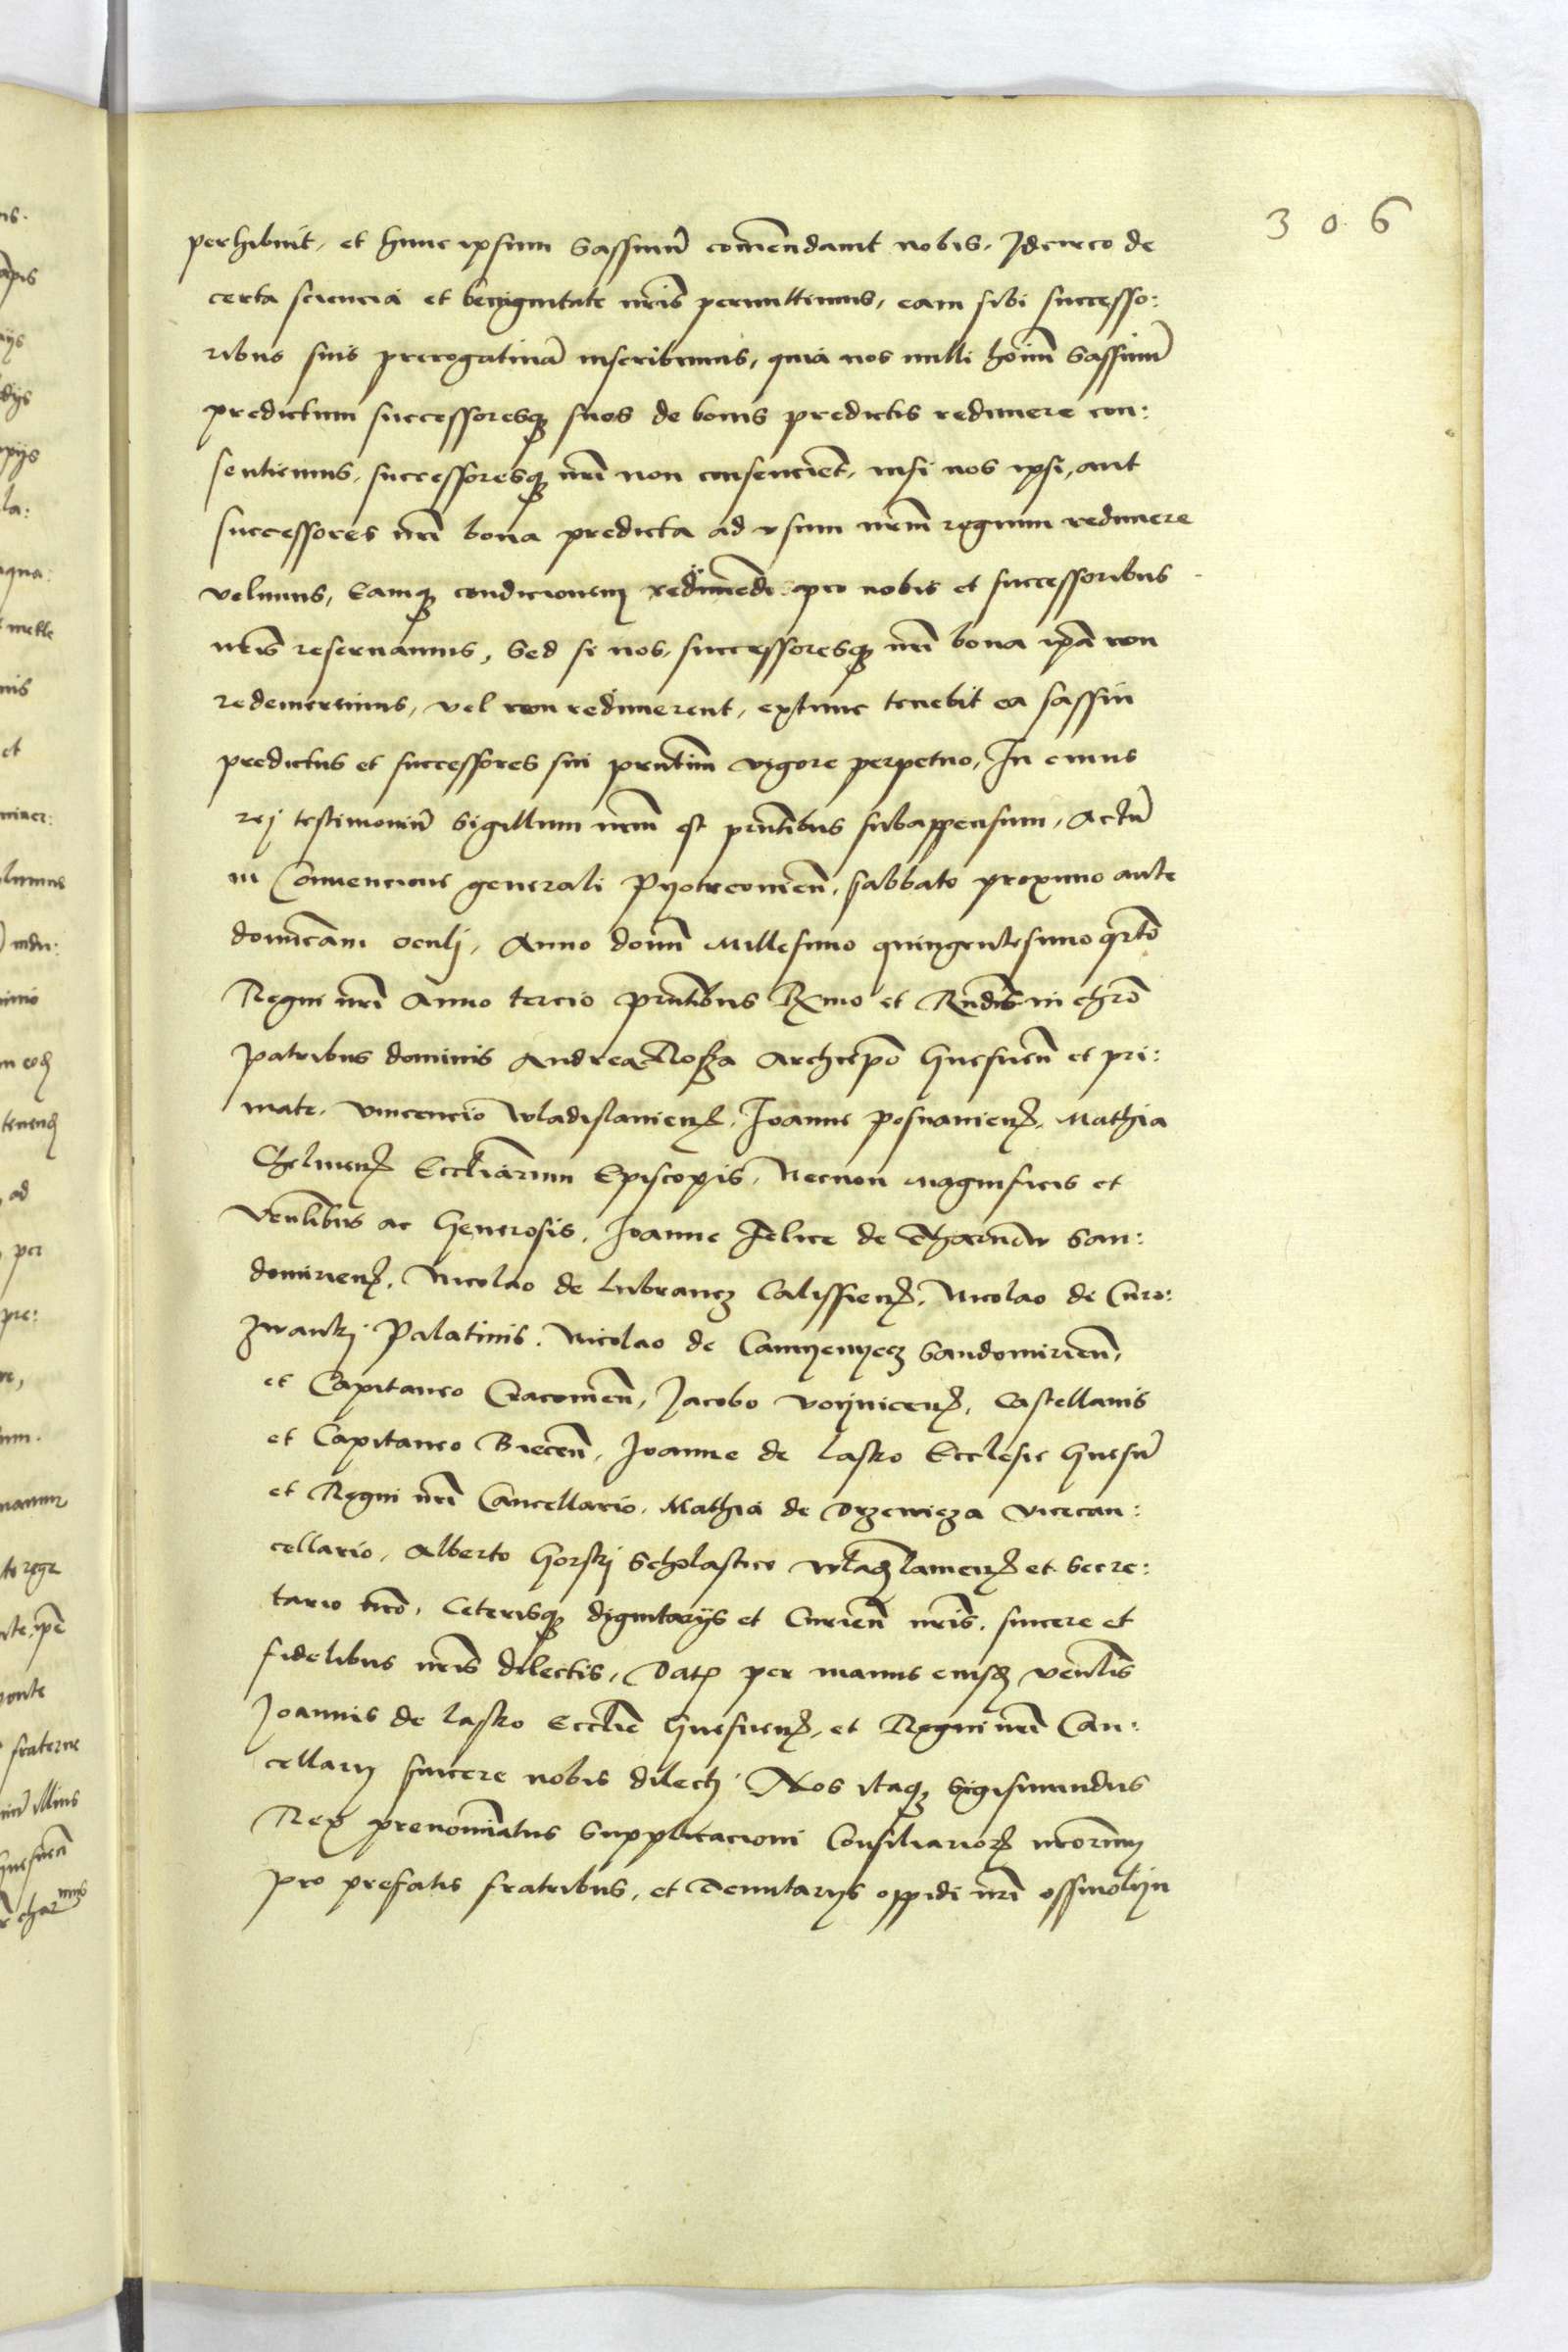 306
perhibuit, et hunc ipsum Sassinũ com̃endauit nobis, Idcirco de
certa sciencia et benignitate nr̃is permittimus, eam sibi successo:
ribus suis prerogatiuã inscribimus, quia nos nulli hoim̃ Sassinũ
predictum successoresq3 suos de bonis predictis redimere con:
sentiemus, successoresq3 nr̃i non consencient, nisi nos ipsi, aut
successores nr̃i bona predicta ad vsum nr̃m regium redimere
velimus, Eamq3 condicionem redimẽdi pro nobis et successoribus
nr̃is reseruamus, Sed si nos, successoresq3 nr̃i bona ip̃a non
redemerimus, vel non redimerent, extunc tenebit ea sassin
predictus et successores sui prñtim̃ vigore perpetuo, In cuius
rej testimoniũ Sigillum nr̃m est prñtibus subappensum, Actũ
in Conuencione generali Pyotrcouieñ, sabbato proximo ante
domĩcam oculj, Anno domĩ Millesimo quingentesimo q̃rto
Regni nr̃i Anno tercio prñtibus Rx̃mo et Rñdis in chrõ
patribus dominis Andrea Rosza Archiep̃o Gnesneñ et pri:
mate, Vincencio Wladislauieñ, Joanne posnanieñ, Mathia
Chelmeñ Eccl̃iarum Episcopis, Necnon Magnificis et
Veñlibus ac Generosis, Joanne Felice de Tharnow San:
domirieñ, Nicolao de lubrancz Calissieñ, Nicolao de Curo:
zwankj Palatinis, Nicolao de Camyenyecz Sandomirieñ,
et Capitaneo Cracouieñ, Jacobo voyniceñ, Castellanis
et Capitaneo Bieceñ, Joanne de lasko Ecclesie Gnesñ
et Regni nr̃i Cancellario, Mathia de Drzewicza vicecan:
cellario, Alberto Gorskj Scholastico wladislauieñ et Secre:
tario nr̃o, Ceterisq3 dignitarijs et Curieñ nr̃is, sincere et
fidelibus nr̃is dilectis, Dat̃ per manus eiusd̃ veñlis
Joannis de lasko Eccl̃ie Gnesneñ, et Regni nr̃i Can:
cellarij sincere nobis dilectj. Nos itaq3 Sigismundus
Rex prenomĩatus Supplicacioni Consiliarioꝝ nr̃orum
pro prefatis fratribus, et aduitarijs oppidi nr̃i ossmolijn